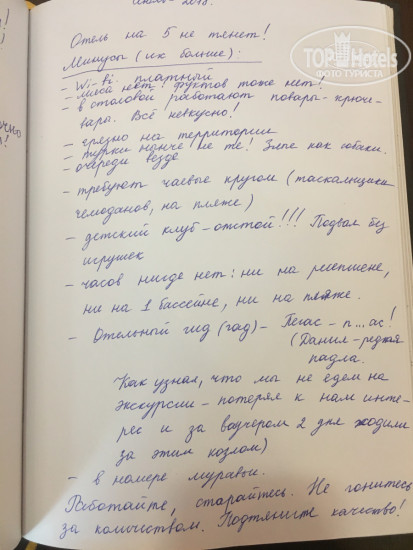 Июль - 2018.
TOP Hotels
ФОТО ТУРИСТА
Отель на 5 не тянет!
Минусы (их больше):
- Wi-Bi платный
- мяса нет! Фруктов тоже нет!
- в столовой работают повары-крюч-
вара. Всё невкусно!
- грязно на территории
- турки нынче не те! Злые как собаки.
- очереди везде
- требуют чаевые кругом (таскальщики
чемоданов, на пляже)
- детский клуб - отстой!!! Подвал без
игрушек
- часов нигде нет: ни на рецепшене,
ни на 1 бассейне, ни на пляже.
- Отельный гид (гад) - Пегас - п...ас!
(Данил - редкая
падла.
Как узнал, что мы не едем на
экскурсии - потерял к нам инте-
рес и за ваучером 2 дня ходили
за этим козлом)
- в номере муравьи.
Работайте, старайтесь. Не гонитесь
за количеством. Подтяните качество!